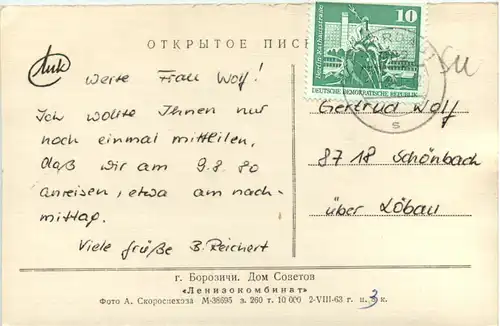 ОТКРЫТОЕ
10
Berlin·Rathausstraße
DEUTSCHE DEMOKRATISCHE REPUBLIK
s
Werte Frau Wolf!
Ich wollte Ihnen nur
noch einmal mitteilen,
daß wir am 9.8.80
anreisen, etwa am nach-
mittag.
Viele Grüße B. Reichert
Gertrud Wolf
8718 Schönbach
über Löbau
г. Борозичи. Дом Советов
«Ленизокомбинат»
Фото А. Скороспехова М-38695 з. 260 т. 10 000 2-VIII-63 г. ц. 3 к.